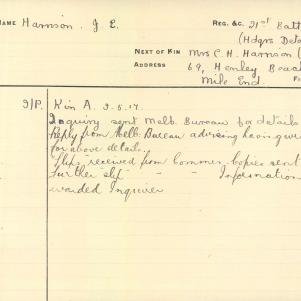 NAME Harrison. J. E. REG. &C. 21st Batt
(Hdqrs Deta
NEXT OF KIN Mrs C. H. Harrison (
ADDRESS 69, Henley Beach
Mile End.
I/P. Kin A. 9.5.17.
Inquiry sent Melb. Bureau for details
Reply from Melb. Bureau advising having
for above details.
Slip received from Commer. copies sent
Further slip " " Information
warded Inquirer